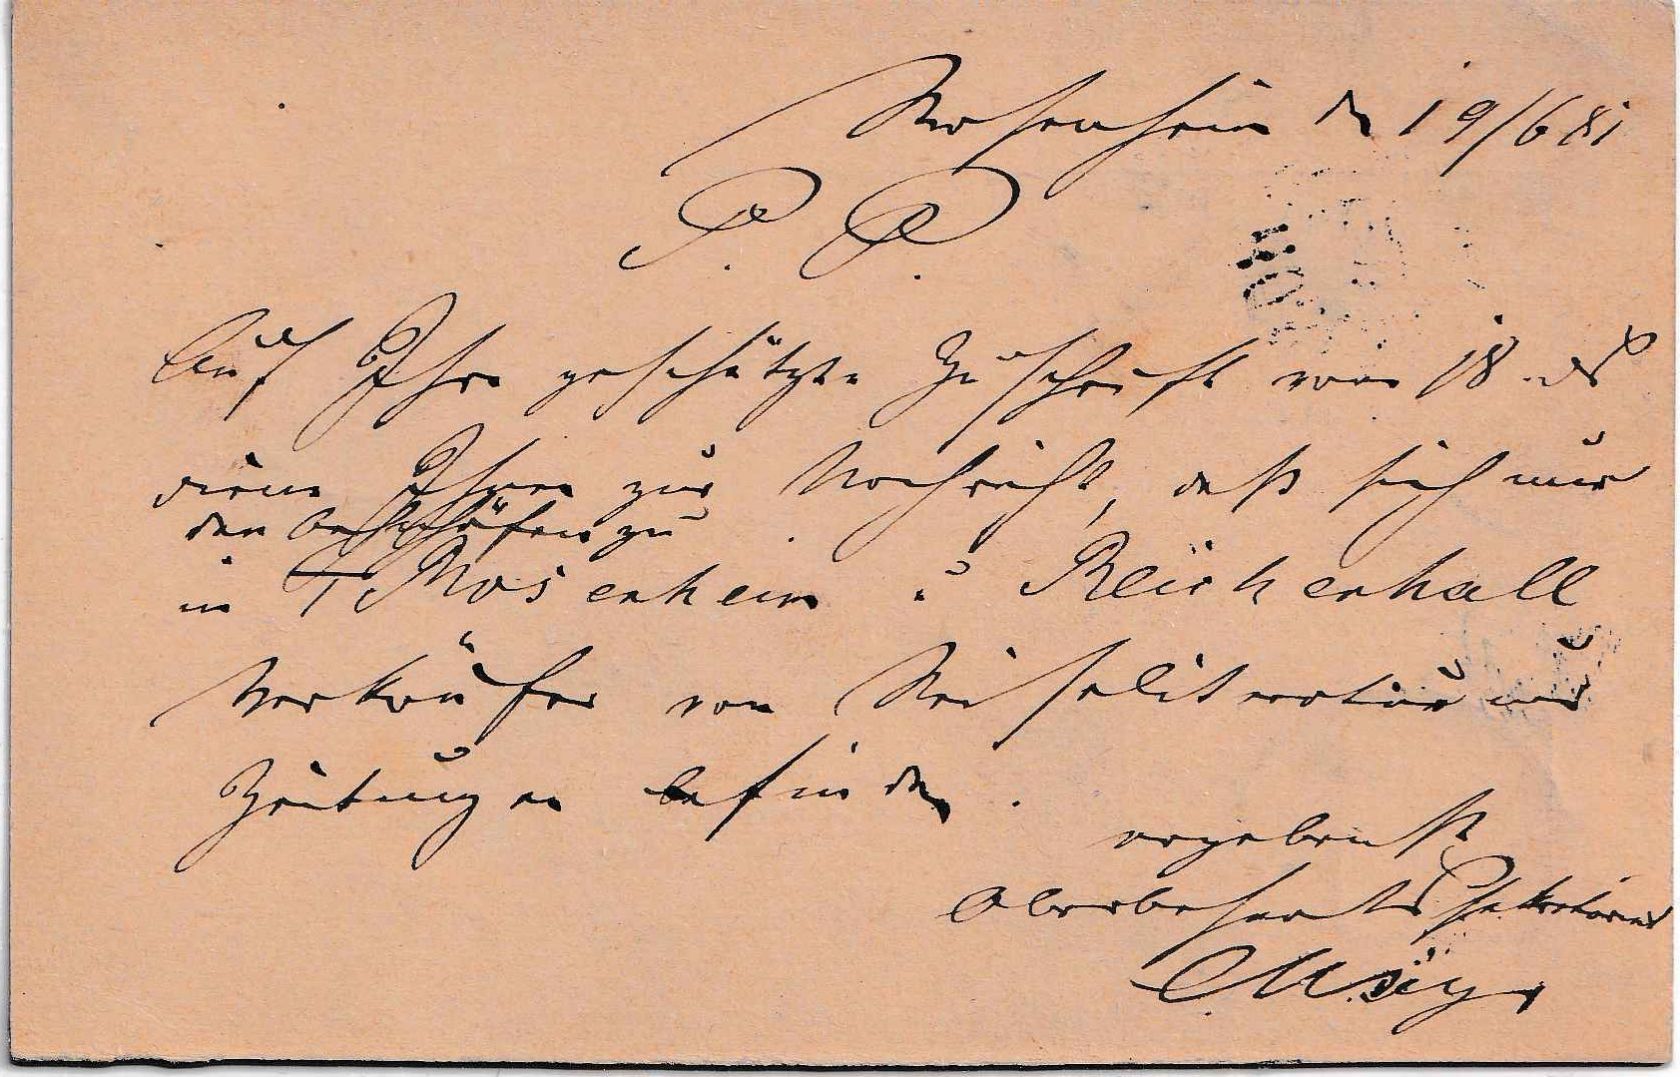 Rosenheim den 19/6 81
P. P.
Auf Ihre geschätzte Zuschrift vom 18. ds
diene Ihnen zur Nachricht, daß sich nur
den Bahnhöfen zu
in Rosenheim u Reichenhall
Verkäufer von Reiseliteratur und
Zeitungen befinden.
ergebenst